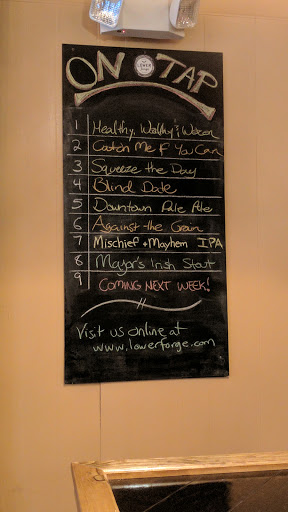 ON TAP
LOWER forge
1 Healthy, Wealthy & Weizen
2 Catch Me If You Can
3 Squeeze the Day
4 Blind Date
5 Downtown Pale Ale
6 Against the Grain
7 Mischief + Mayhem IPA
8 Mayor's Irish Stout
9 COMING NEXT WEEK!
Visit us online at
www.lowerforge.com